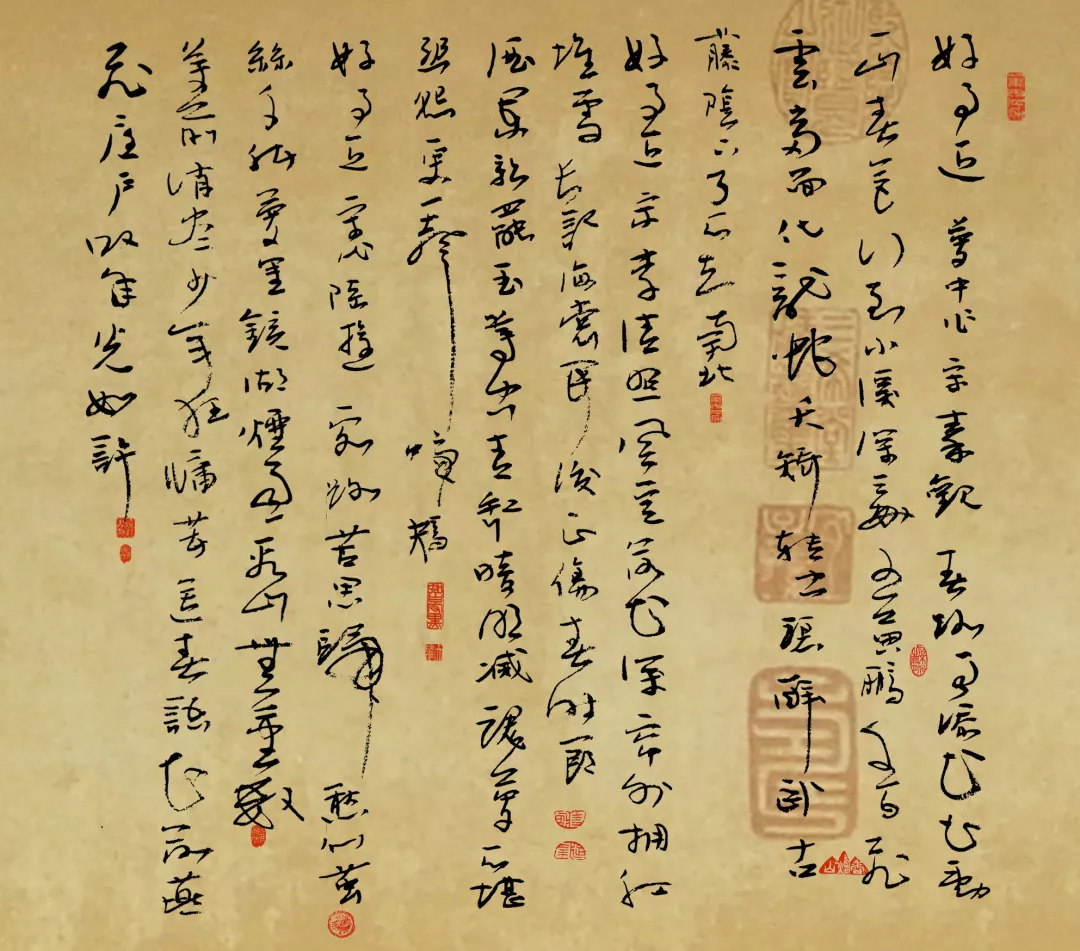 好事近 夢中作 宋 秦觀 春路雨添花 花動
一山春色 行到小溪深處 有黃鸝千百 飛
雲當面化龍蛇 夭矯轉空碧 醉臥古
藤陰下 了不知南北
好事近 宋 李清照 風定落花深 簾外擁紅
堆雪 長記海棠開後 正傷春時節
酒闌歌罷玉尊空 青缸暗明滅 魂夢不堪
幽怨 更一聲啼鴂
好事近 宋代陸游 客路苦思歸 愁似繭
絲千緒 夢里鏡湖煙雨 看山無重數
尊前消盡少年狂 慵著送春語 花落燕
飛庭戶 歎年光如許